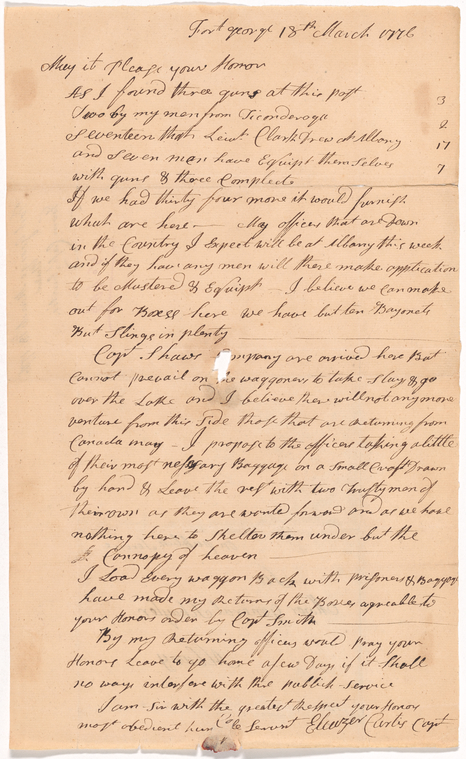 Fort george 18th March 1776
May it Please your Honor
As I found three guns at this post 3
Two by my men from Ticonderoga 2
Seventeen that Lieut Clark Drew at Albany 17
and Seven men have Equipt themselves 7
with guns & three Compleete
If we had thirty four more it would furnish
what are here — My officers that are Down
in the Country I Expect will be at Albany this week
and if they have any men will there make application
to be Mustered & Equipt — I believe we can make
out for Boxes here we have but ten Bayonets
But Slings in plenty
Capt Shaws ompany are arived here But
Cannot prevail on the waggoners to take Slay & go
over the Lake and I believe there will not any more
venture from this Side those that are Returning from
Canada may — I propose to the officers taking a little
of their most nessary Baggage on a Small Drawn
by hand & Leave the rest with two Trusty men of
their own as they are wanted forward and as we have
nothing here to Shelter them under but the
Cannopy of heaven
I Load Every waggon Back with prisoners & Baggage
have made my Returns of the Boxes agreable to
your Honors order by Capt Smith
By my Returning officer would pray your
Honors Leave to go home a few Days if it Shall
no ways interfere with the publick Service
I am Sir with the greatest Respect your Honors
most obedient hum ble Servant Eleazer Curtis Capt